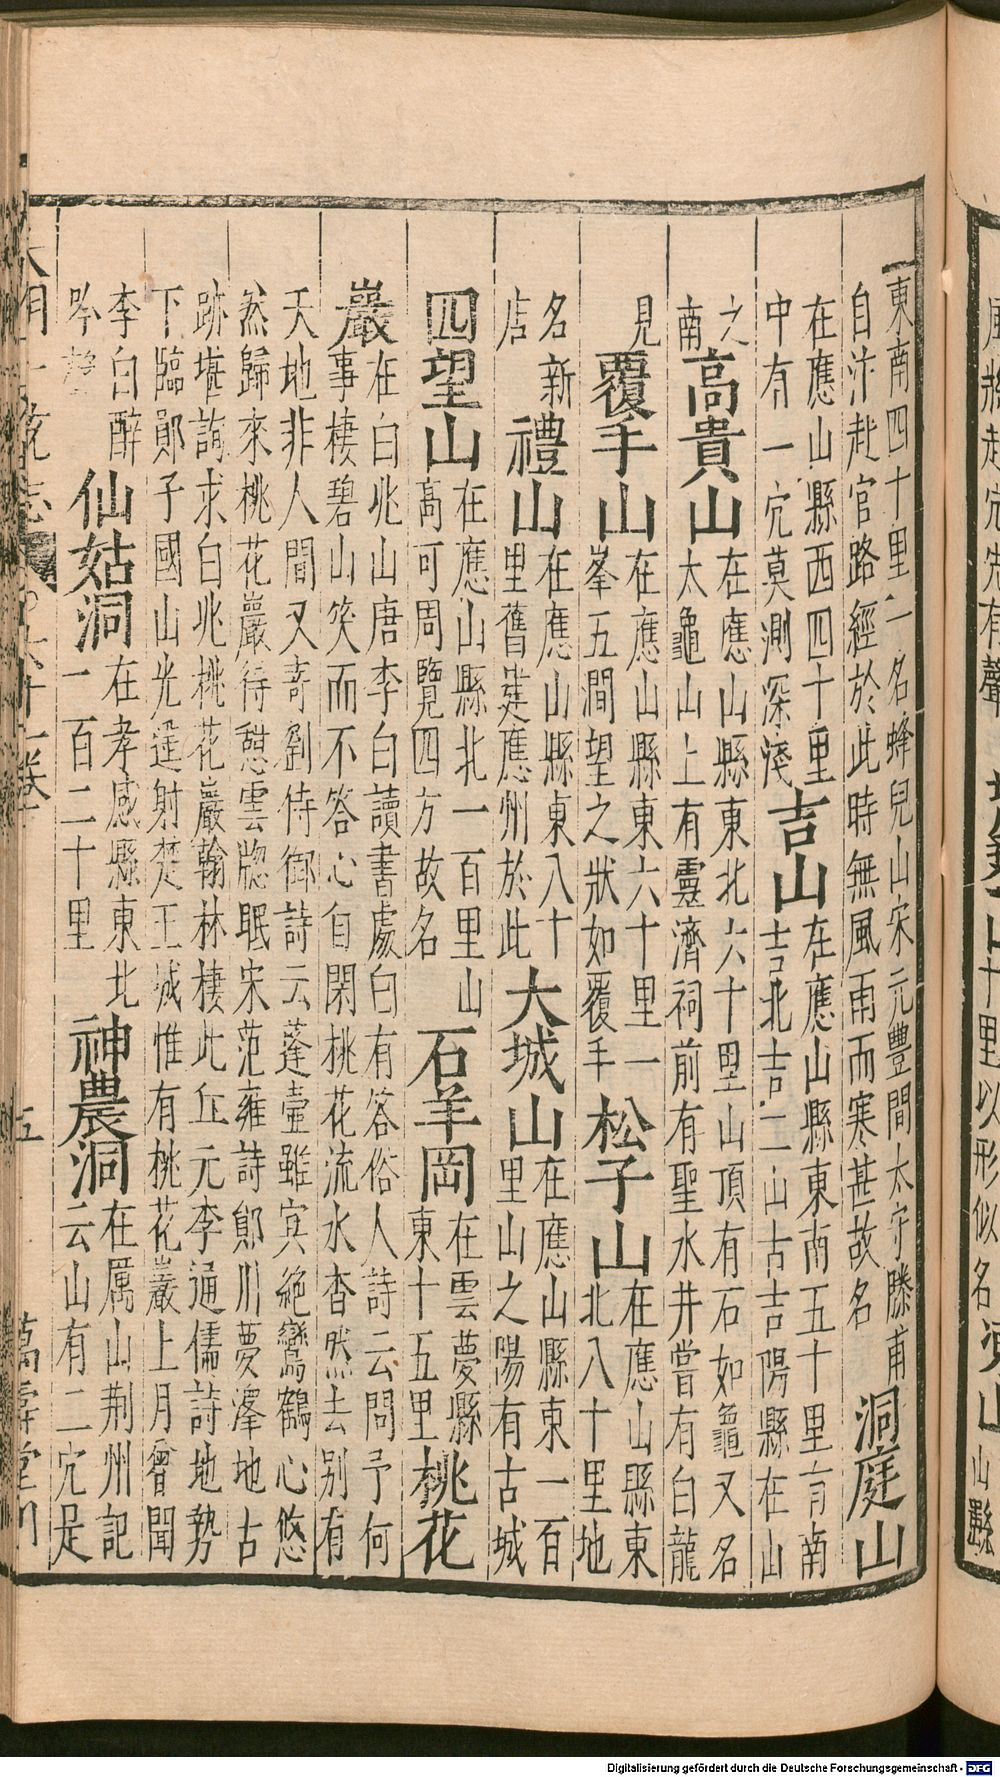 東南四十里二名蜂兒山宋元豐間太守滕甫
自汴赴官路經於此時無風雨而寒甚故名
洞庭山
在應山縣西四十里
中有一穴莫測深淺
吉山
在應山縣東南五十里有南
吉北吉二山古吉陽縣在山
之
南
高貴山
在應山縣東北六十里山頂有石如龜又名
太龜山上有靈濟祠前有聖水井嘗有白龍
見
覆手山
在應山縣東六十里一
峯五澗望之狀如覆手
松子山
在應山縣東
北八十里地
名新
店
禮山
在應山縣東八十
里舊建應州於此
大城山
在應山縣東一百
里山之陽有古城
四望山
在應山縣北一百里山
高可周覽四方故名
石羊岡
在雲夢縣
東十五里
桃花
巖
在白兆山唐李白讀書處白有答俗人詩云問予何
事棲碧山笑而不答心自閑桃花流水杳然去别有
天地非人間又寄劉侍御詩云蓬壺雖冥絶鸞鶴心悠
然歸來桃花巖得憩雲牕眠宋范雍詩鄖川夢澤地古
跡堪詢求白兆桃花巖翰林棲此丘元李通儒詩地勢
下臨鄖子國山光遥射楚王城惟有桃花巖上月曾聞
李白醉
吟聲
仙姑洞
在孝感縣東北
一百二十里
神農洞
在厲山荆州記
云山有二穴是
大明一統志 六十一卷 五 萬壽堂刊
風將起穴先有聲
十里以形似名
山縣
Digitalisierung gefördert durch die Deutsche Forschungsgemeinschaft - DFG